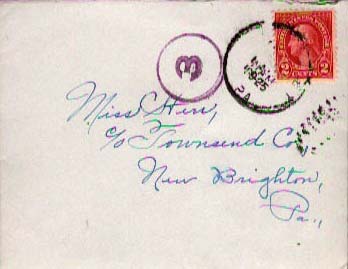 3
PA
2 2
Miss Herr,
c/o Townsend Co.
New Brighton,
Pa.,